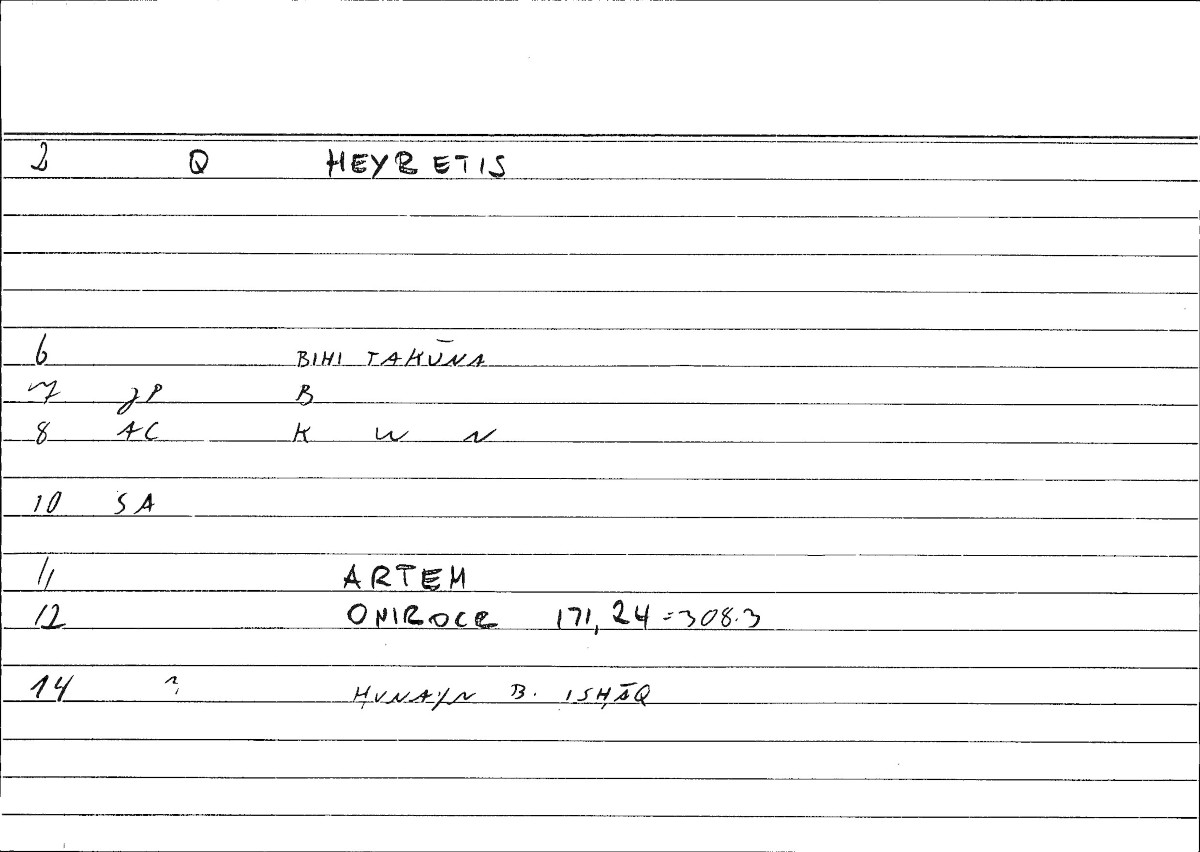 2 Q HEYRETIS
6 BIHI TAKŪNA
7 JP B
8 AC K W N
10 SA
11 ARTEM
12 ONIROCR 171, 24 = 308.3
14 ? ḤUNAYN B. ISḤĀQ